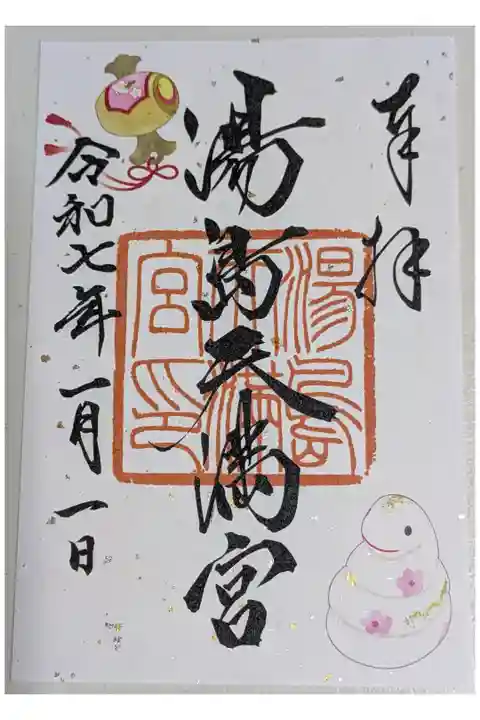 奉拝
湯島天満宮
湯島天満宮印
令和七年一月一日